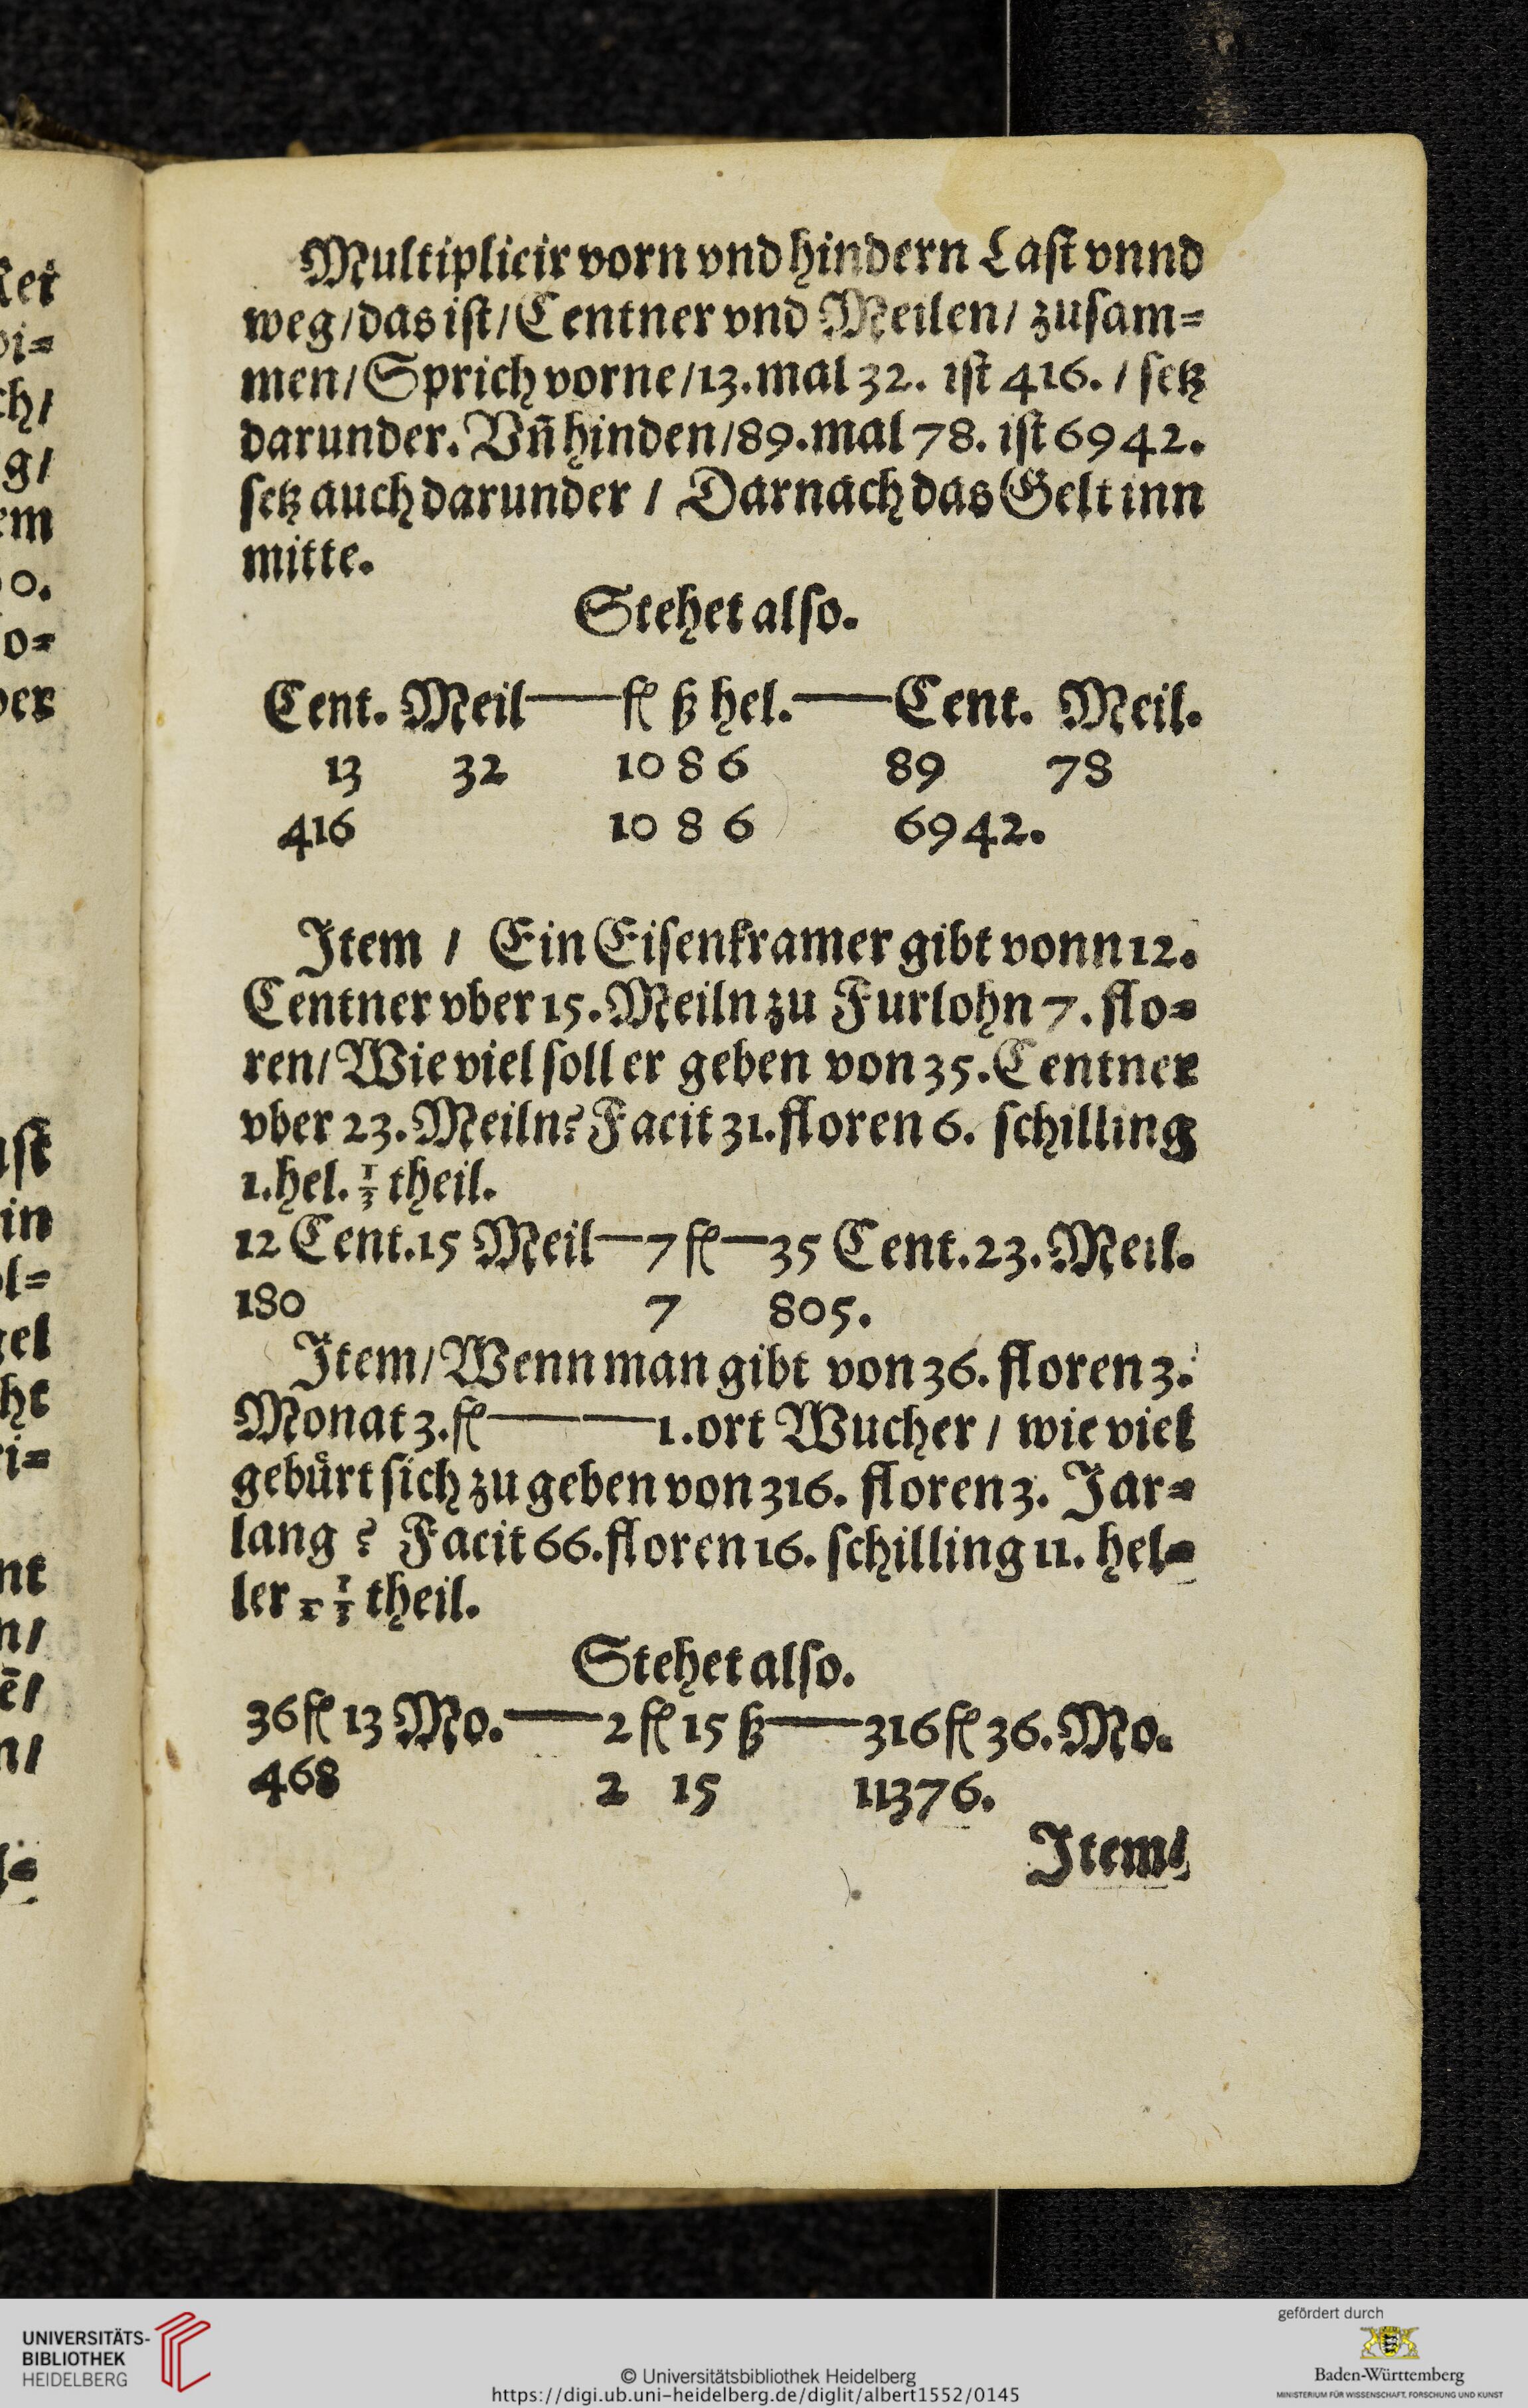 Multiplicir vorn vnd hindern Last vnnd
weg/das ist/Centner vnd Meilen/ zusam⸗
men/Sprich vorne/13.mal 32. ist 416. / setz
darunder. Vn̄ hinden/89.mal 78. ist 6942.
setz auch darunder / Darnach das Gelt inn
mitte.
Stehet also.
Cent. Meil——fl ß hel.——Cent. Meil.
13 32 10 8 6 89 78
416 10 8 6 6942.
Item / Ein Eisenkramer gibt vonn 12.
Centner vber 15. Meiln zu Furlohn 7. flo⸗
ren/Wie viel soll er geben von 35. Centner
vber 23. Meiln? Facit 31. floren 6. schilling
1.hel. 1/3 theil.
12 Cent.15 Meil—7 fl—35 Cent.23.Meil.
180 7 805.
Item/Wenn man gibt von 36. floren 3.
Monat 3.fl————1.ort Wucher / wie viel
gebürt sich zu geben von 316. floren 3. Jar⸗
lang ? Facit 66.floren 16. schilling 11. hel⸗
ler theil.
Stehet also.
36 fl 13 Mo.——2 fl 15 ß——316 fl 36. Mo.
468 2 15 11376.
Item/
ch/
g/
em
0.
o⸗
ber
in
l⸗
gel
ht
i⸗
nt
n/
ē/
n/
UNIVERSITÄTS-
BIBLIOTHEK
HEIDELBERG
© Universitätsbibliothek Heidelberg
https://digi.ub.uni-heidelberg.de/diglit/albert1552/0145
gefördert durch
Baden-Württemberg
MINISTERIUM FÜR WISSENSCHAFT, FORSCHUNG UND KUNST